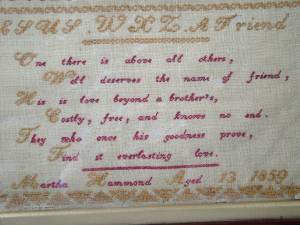 ESUS . WXZ . A Friend
One there is above all others,
Well deserves the name of friend,
His is love beyond a brother's,
Costly, free, and knows no end.
They who once his goodness prove,
Find it everlasting love.
Martha Hammond Aged 13 1859